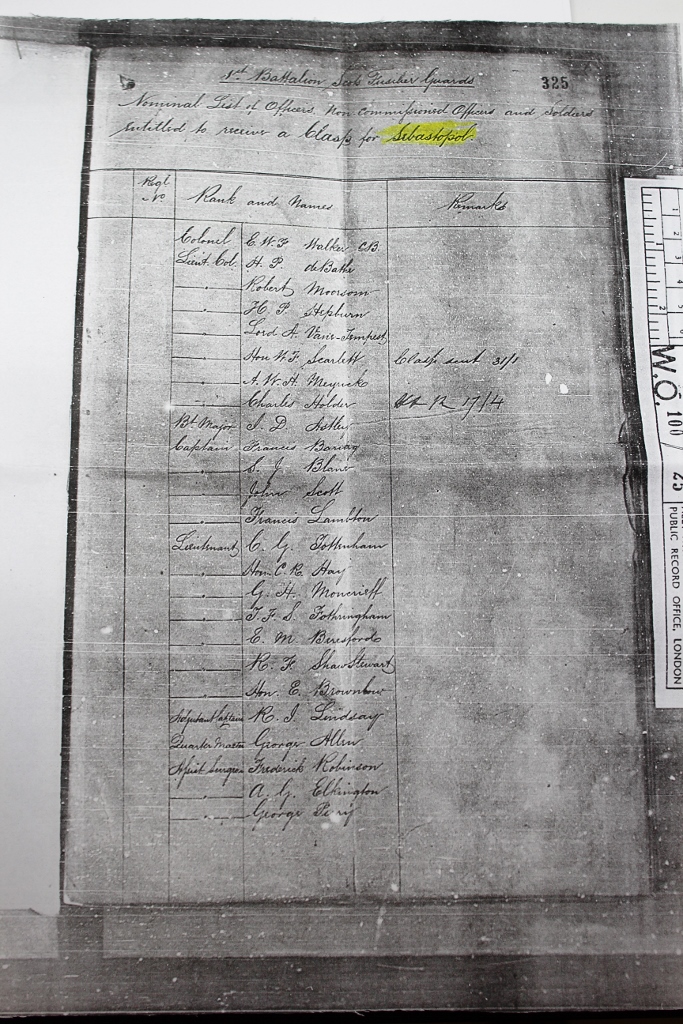 1st Battalion Scots Fusilier Guards
325
Nominal List of Officers, Non Commissioned Officers and Soldiers
entitled to receive a Clasp for Sebastopol.
Regl No Rank and Names Remarks
Colonel E. W. F. Walker CB
Lieut. Col. H. P. de Bathe
" Robert Moorsom
" H. P. Hepburn
" Lord A. Vane-Tempest
" Hon W. F. Scarlett Clasp sent 31/1
" A. W. H. Meyrick
" Charles Holder 17/4
Bt Major J. D. Astley
Captain Francis Baring
" S. J. Blane
" John Scott
" Francis Lambton
Lieutenant C. G. Tottenham
" Hon. C. R. Hay
" G. H. Moncrieff
" T. F. S. Fothringham
" E. M. Beresford
" R. F. Shaw Stewart
" Hon. E. Brownlow
Adjutant Captain R. J. Lindsay
Quarter Master George Allen
Assist Surgeon Frederick Robinson
" A. G. Elkington
" George Perry
W.O. 100 / 25
PUBLIC RECORD OFFICE, LONDON
1
2
3
4
5
1
2